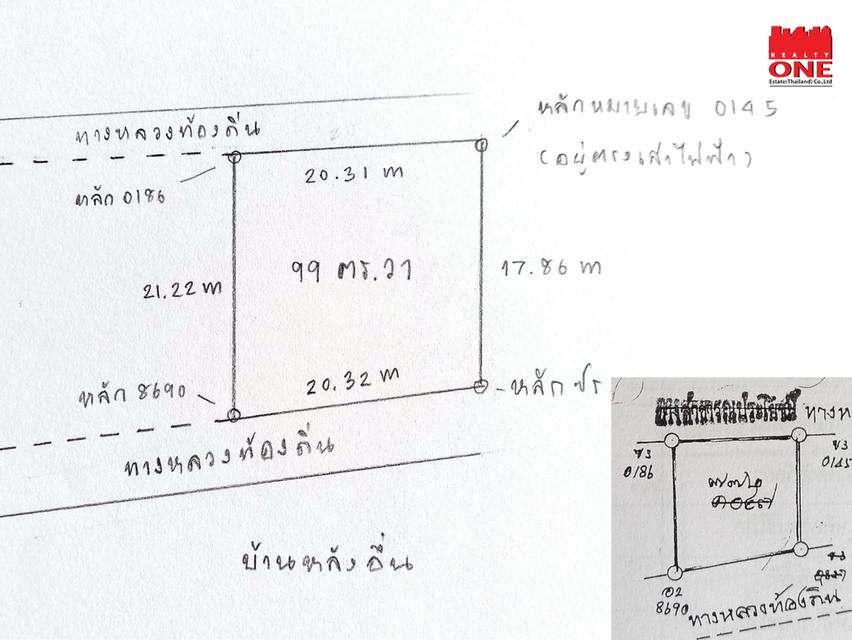 REALTY
ONE
Estate(Thailand) Co.,Ltd
ทางหลวงท้องถิ่น
หลักหมายเลข 0145
(อยู่ตรงเสาไฟฟ้า)
20.31 m
หลัก 0186
99 ตร.วา
21.22 m
17.86 m
หลัก 8690
20.32 m
หลัก
ทางหลวงท้องถิ่น
บ้านหลังอื่น
ทางห
0186
0145
8690
ทางหลวงท้องถิ่น